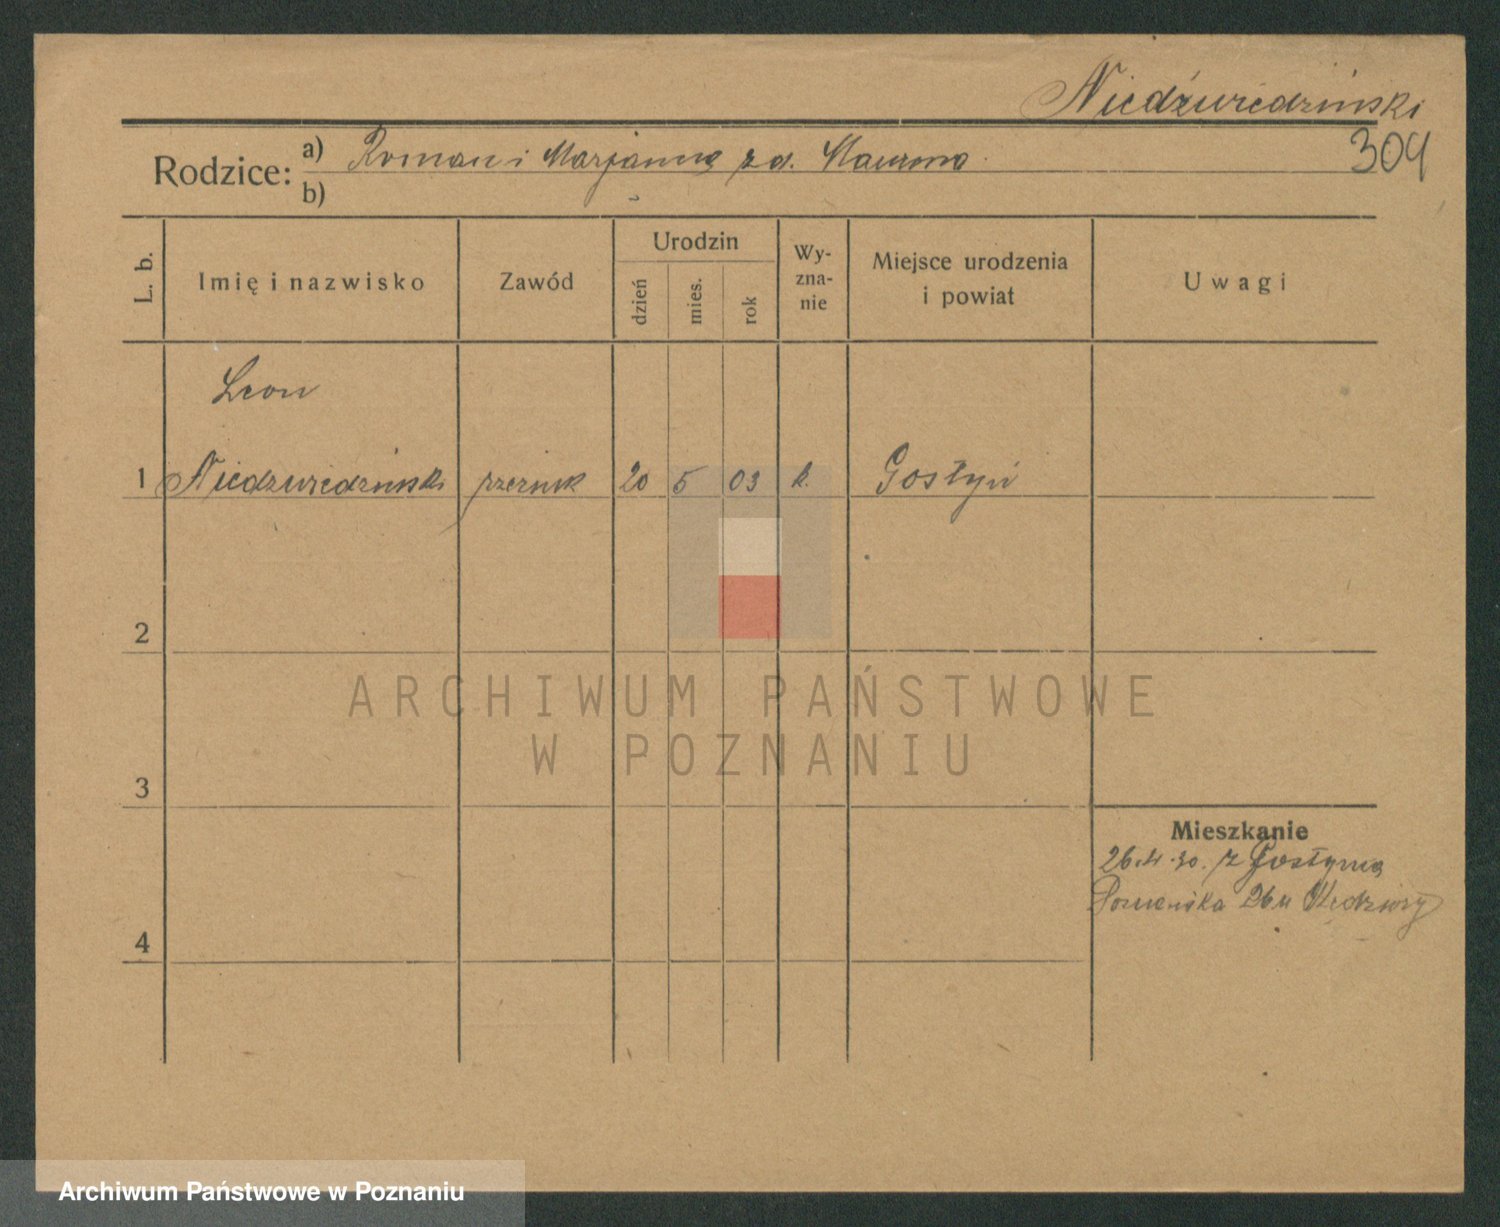 Niedźwiedziński
304
Rodzice: a) Roman i Marjanna z d.
b)
L. b.
Imię i nazwisko
Zawód
Urodzin
dzień
mies.
rok
Wy-
zna-
nie
Miejsce urodzenia
i powiat
Uwagi
Leon
1 Niedzwiedzinski rzeźnik 20 5 03 k. Gostyń
2
3
4
ARCHIWUM PAŃSTWOWE
W POZNANIU
Mieszkanie
26.4.30. z Gostynia
Poznańska 26 u
Archiwum Państwowe w Poznaniu